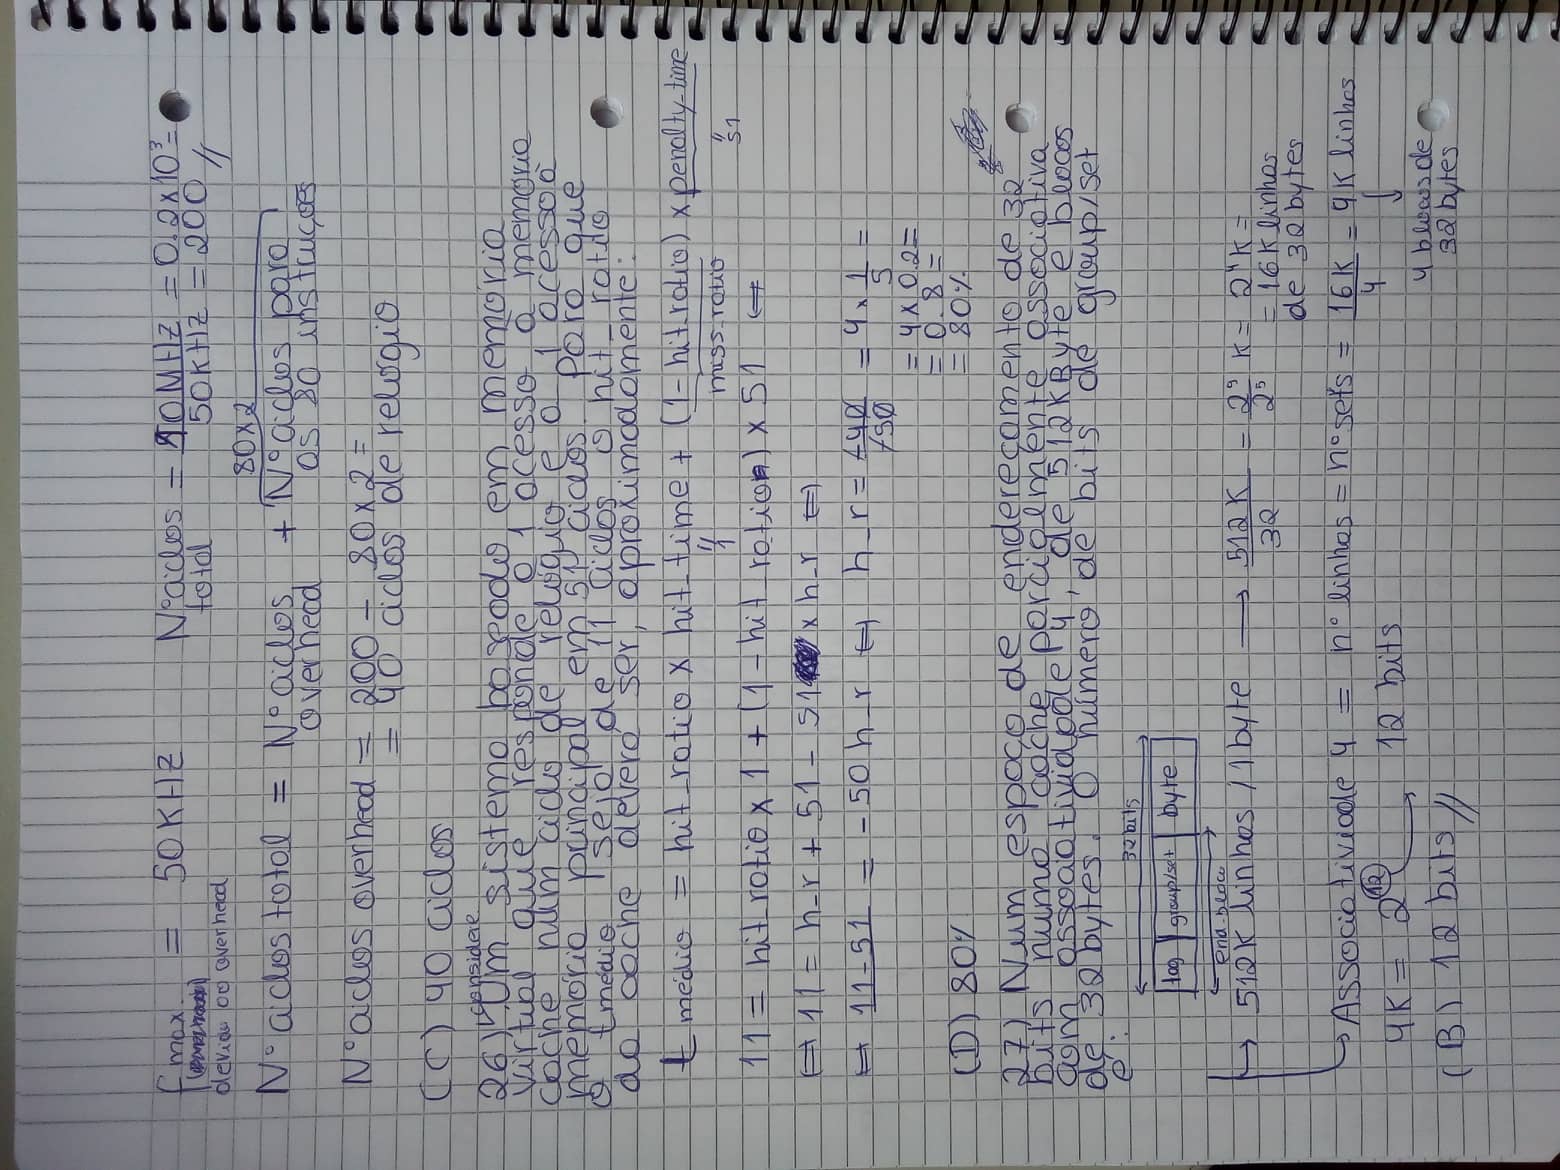 fmax = 50KHZ Nº ciclos = 10MHZ = 0.2x10³ =
total 50KHZ = 200 //
devido ao overhead
80x2
Nº ciclos total = Nº ciclos + Nº ciclos para
overhead as 80 instruções
Nº ciclos overhead = 200 - 80x2 =
= 40 ciclos de relógio
(C) 40 ciclos
26) considere Um sistema baseado em memória
virtual que responde a 1 acesso à memória
cache num ciclo de relógio e a 1 acesso à
memória principal em 51 ciclos. Para que
o tmédio seja de 11 ciclos o hit_ratio
da cache deverá ser, aproximadamente:
t médio = hit_ratio x hit_time + (1-hit_ratio) x penalty_time
" 1 miss_ratio " 51
11 = hit_ratio x 1 + (1-hit_ratio) x 51 ⇔
⇔ 11 = h_r + 51 - 51 x h_r ⇔
⇔ 11-51 = -50 h_r ⇔ h_r = -40/-50 = 4 x 1/5 =
= 4 x 0.2 =
= 0.8 =
= 80%
(D) 80%
27) Num espaço de endereçamento de 32
bits numa cache parcialmente associativa
com associatividade 4, de 512KByte e blocos
de 32 bytes. O número de bits de group/set
é:
32 bits
tag group/set byte
end. bloco
→ 512K linhas / 1 byte → 512K/32 = 2⁹/2⁵ K = 2⁴K =
= 16K linhas
de 32 bytes
→ Associatividade 4 = nº linhas = nº sets = 16K/4 = 4K linhas
4K = 2¹² → 12 bits
↓
4 blocos de
32 bytes
(B) 12 bits //